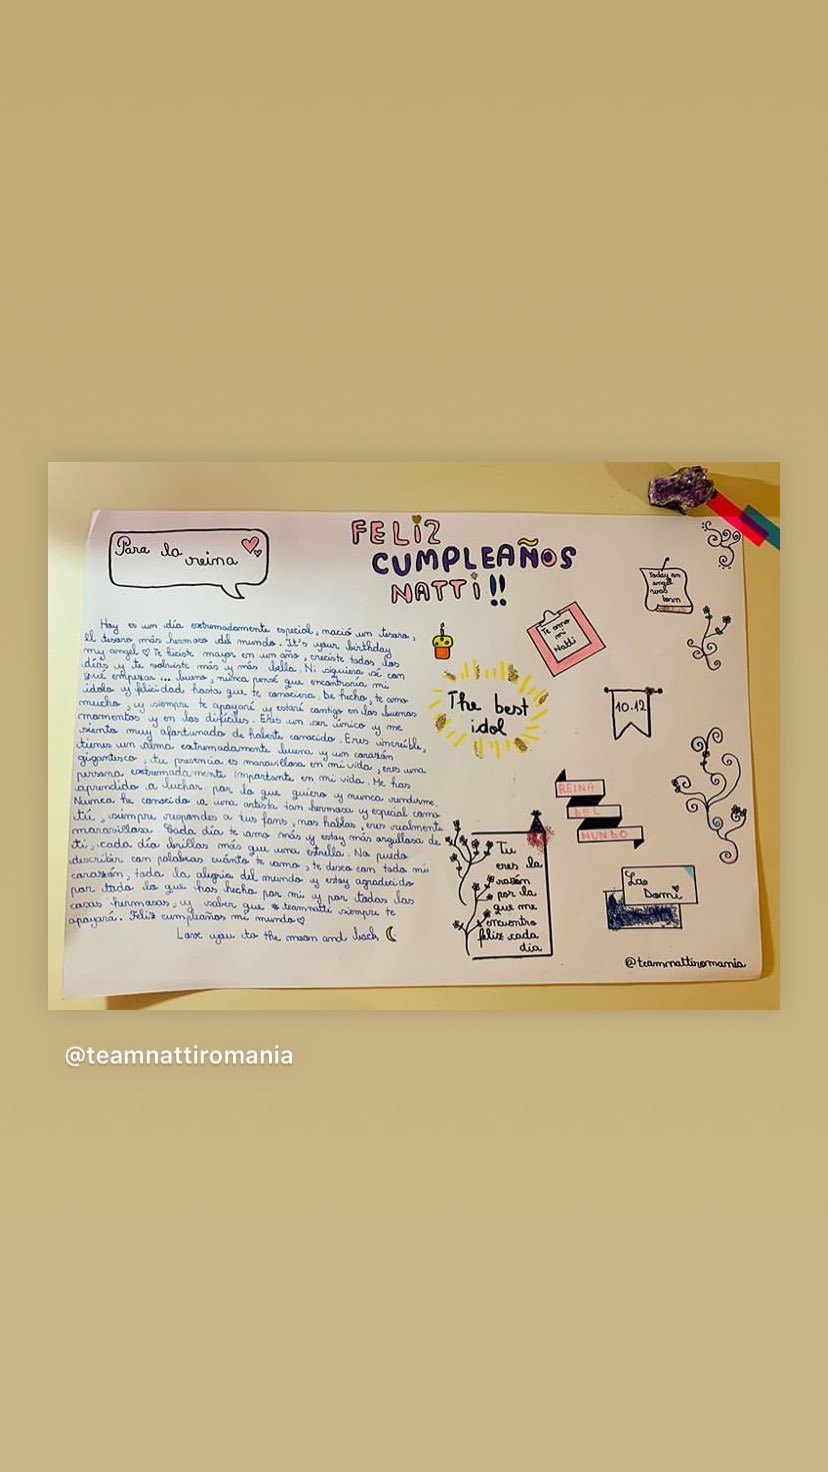 Para la
reina
FELIZ
CUMPLEAÑOS
NATTI!!
Hoy es un día extremadamente especial, nació un tesoro,
el tesoro más hermoso del mundo. It's your birthday
my angel ♡ Te hiciste mayor en un año, creciste todos los
días y te volviste más y más bella. Ni siquiera sé con
qué empezar... bueno, nunca pensé que encontraría mi
idolo y felicidad hasta que te conociera. De hecho, te amo
mucho, y siempre te apoyaré y estaré contigo en los buenos
momentos y en los difíciles. Eres un ser único y me
siento muy afortunado de haberte conocido. Eres increíble,
tienes un alma extremadamente buena y un corazón
gigantesco, tu presencia es maravillosa en mi vida, eres una
persona extremadamente importante en mi vida. Me has
aprendido a luchar por lo que quiero y nunca rendirme.
Nunca he conocido a una artista tan hermosa y especial como
tú, siempre respondes a tus fans, nos hablas, eres realmente
maravillosa. Cada día te amo más y estoy más orgullosa de
ti, cada día brillas más que una estrella. No puedo
describir con palabras cuánto te amo, te deseo con todo mi
corazón, toda la alegría del mundo y estoy agradecido
por todo lo que has hecho por mi y por todas las
cosas hermosas, y saber que teamnatti siempre te
apoyará. Feliz cumpleaños mi mundo♡
Love you to the moon and back
Today an
angel
was
born
Te amo
mi
Natti
The best
idol
10.12
REINA
DEL
MUNDO
Tu
eres la
razón
por la
que me
encuentro
feliz cada
día
La
Domi
@teamnattiromania
@teamnattiromania